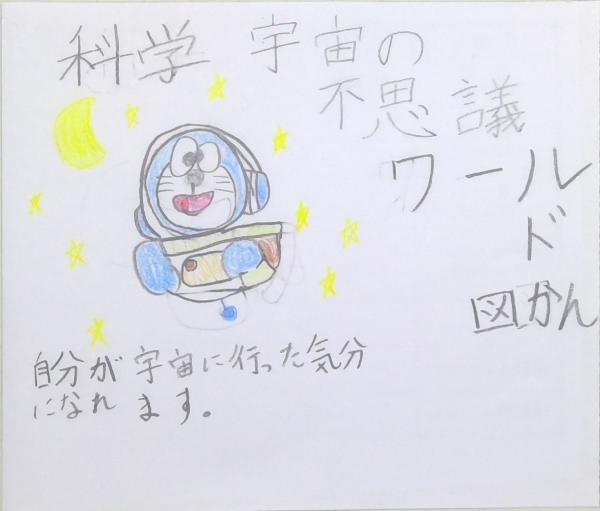 科学 宇宙の
不思議
ワールド
図かん
自分が宇宙に行った気分
になれます。